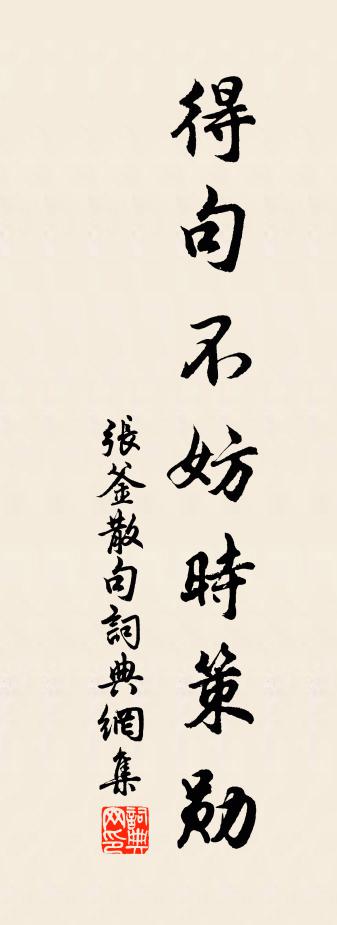 得句不妨時策勋
張釜散句詞典網集
詞典網印